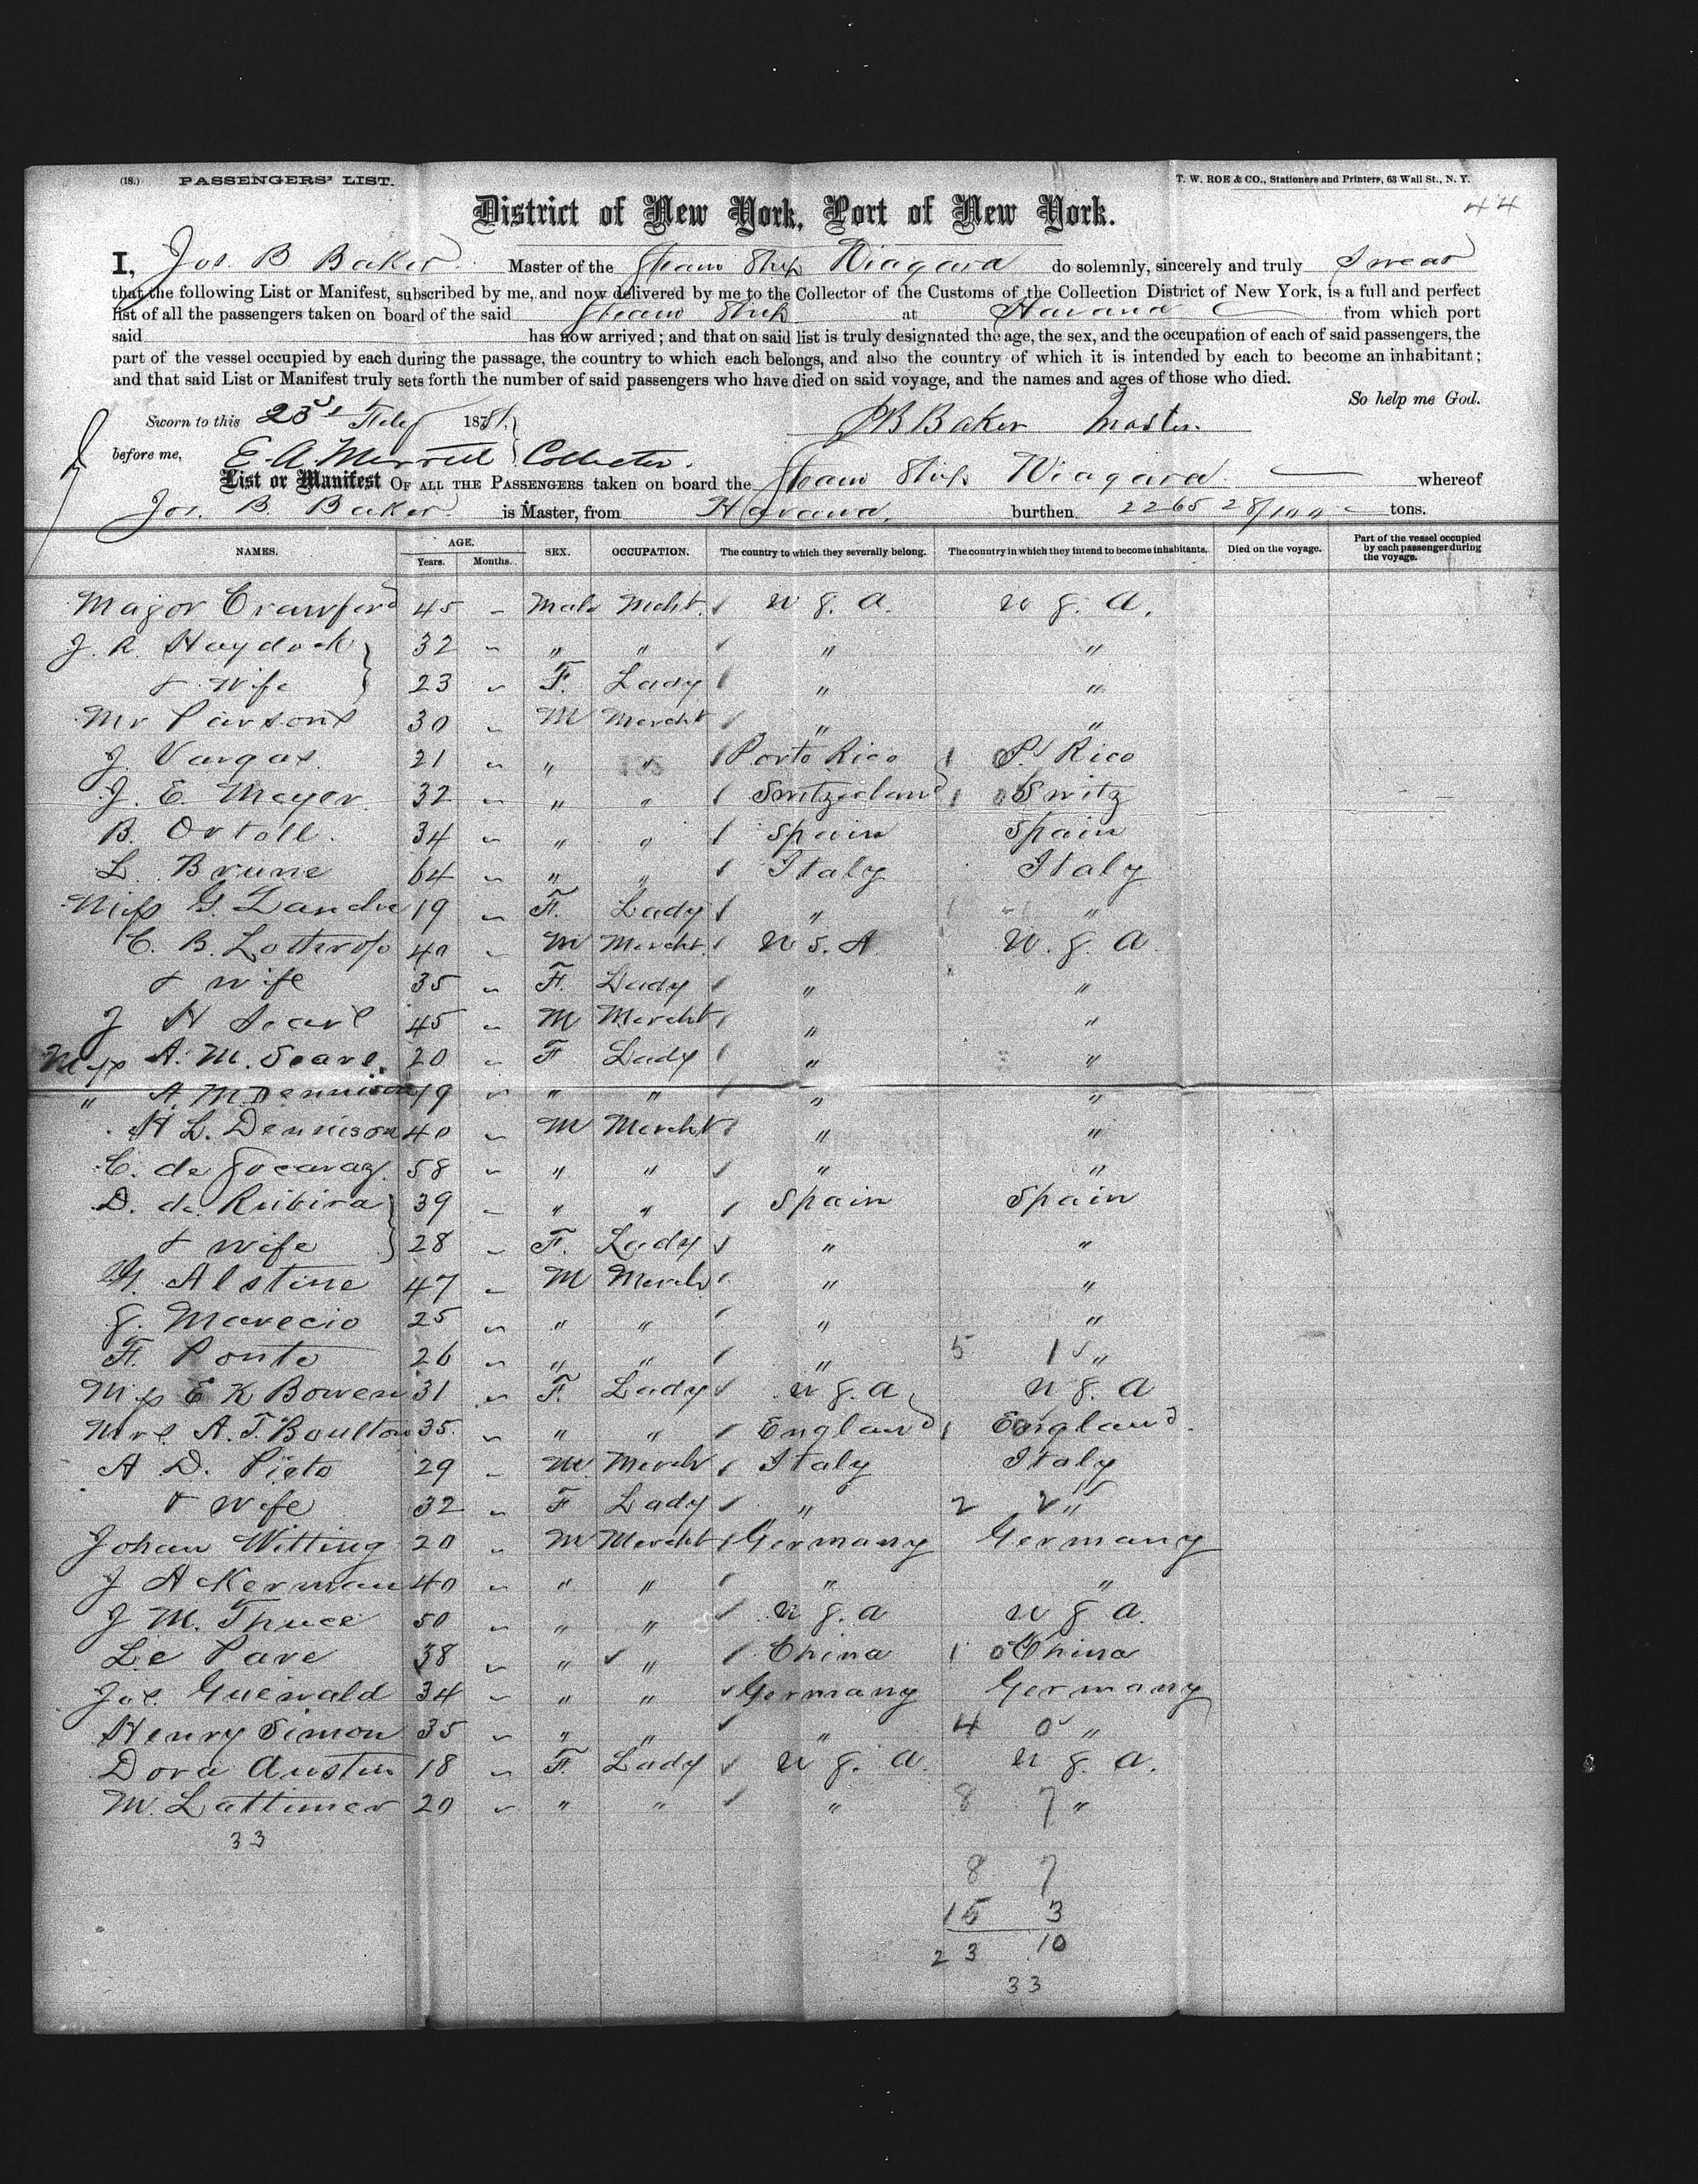 (18.) PASSENGERS' LIST. T. W. ROE & CO., Stationers and Printers, 63 Wall St., N. Y.
44
District of New York, Port of New York.
I, Jos. B Baker Master of the Steam Ship Niagara do solemnly, sincerely and truly Swear
that the following List or Manifest, subscribed by me, and now delivered by me to the Collector of the Customs of the Collection District of New York, is a full and perfect
list of all the passengers taken on board of the said Steam Ship at Havana from which port
said has now arrived; and that on said list is truly designated the age, the sex, and the occupation of each of said passengers, the
part of the vessel occupied by each during the passage, the country to which each belongs, and also the country of which it is intended by each to become an inhabitant;
and that said List or Manifest truly sets forth the number of said passengers who have died on said voyage, and the names and ages of those who died.
So help me God.
Sworn to this 23d Feby 1881. JB Baker Master.
before me, E. A. Merritt Collector.
List or Manifest OF ALL THE PASSENGERS taken on board the Steam Ship Niagara whereof
Jos. B. Baker is Master, from Havana, burthen 2265 28/100 tons.
NAMES. AGE. Years. Months. SEX. OCCUPATION. The country to which they severally belong. The country in which they intend to become inhabitants. Died on the voyage. Part of the vessel occupied by each passenger during the voyage.
Major Crawford 45 - Male Mcht. U S. A. U S. A.
J. R. Haydock 32 - " " " "
& Wife 23 - F. Lady " "
Mr Parsons 30 - M Mercht " "
J. Vargas 21 - " " Porto Rico 1 0 P. Rico
J. E. Meyer 32 - " " Switzerland 1 0 Switz
B. Ortoll. 34 - " " Spain Spain
L. Brune 64 - " " Italy Italy
Miss G. Landre 19 - F. Lady " "
C. B. Lothrop 40 - M Mercht. U S. A U. S. A
& wife 35 - F. Lady " "
J H Searl 45 - M Mercht " "
Miss A. M. Searl. 20 - F Lady " "
" A. M. Dennison 19 - " " " "
H L. Dennison 40 - M Mercht " "
C. de 58 - " " " "
D. de Rubira 39 - " " Spain Spain
& wife 28 - F. Lady " "
Alstine 47 - M Merch " "
S. Marecio 25 - " " " "
F. Ponto 26 - " " " 5 1 "
Miss E K Bowen 31 - F. Lady U S. A U S. A
Mrs. A. T. Boulton 35. - " " England 1 0 England
A D. Pieto 29 - M. Merch Italy Italy
& Wife 32 - F Lady " 2 2 "
Johan Witting 20 - M Mercht Germany Germany
J Ackerman 40 - " " " "
J M. 50 - " " U S. A U S A.
Le Pave 38 - " " China 1 0 China
Jos. Guewald 34 - " " Germany Germany
Henry Simon 35 - " " " 4 0 "
Dora Austin 18 - F. Lady U S. A. U S. A.
M. Lattimer 20 - " " " 8 7 "
33
8 7
15 3
23 10
33